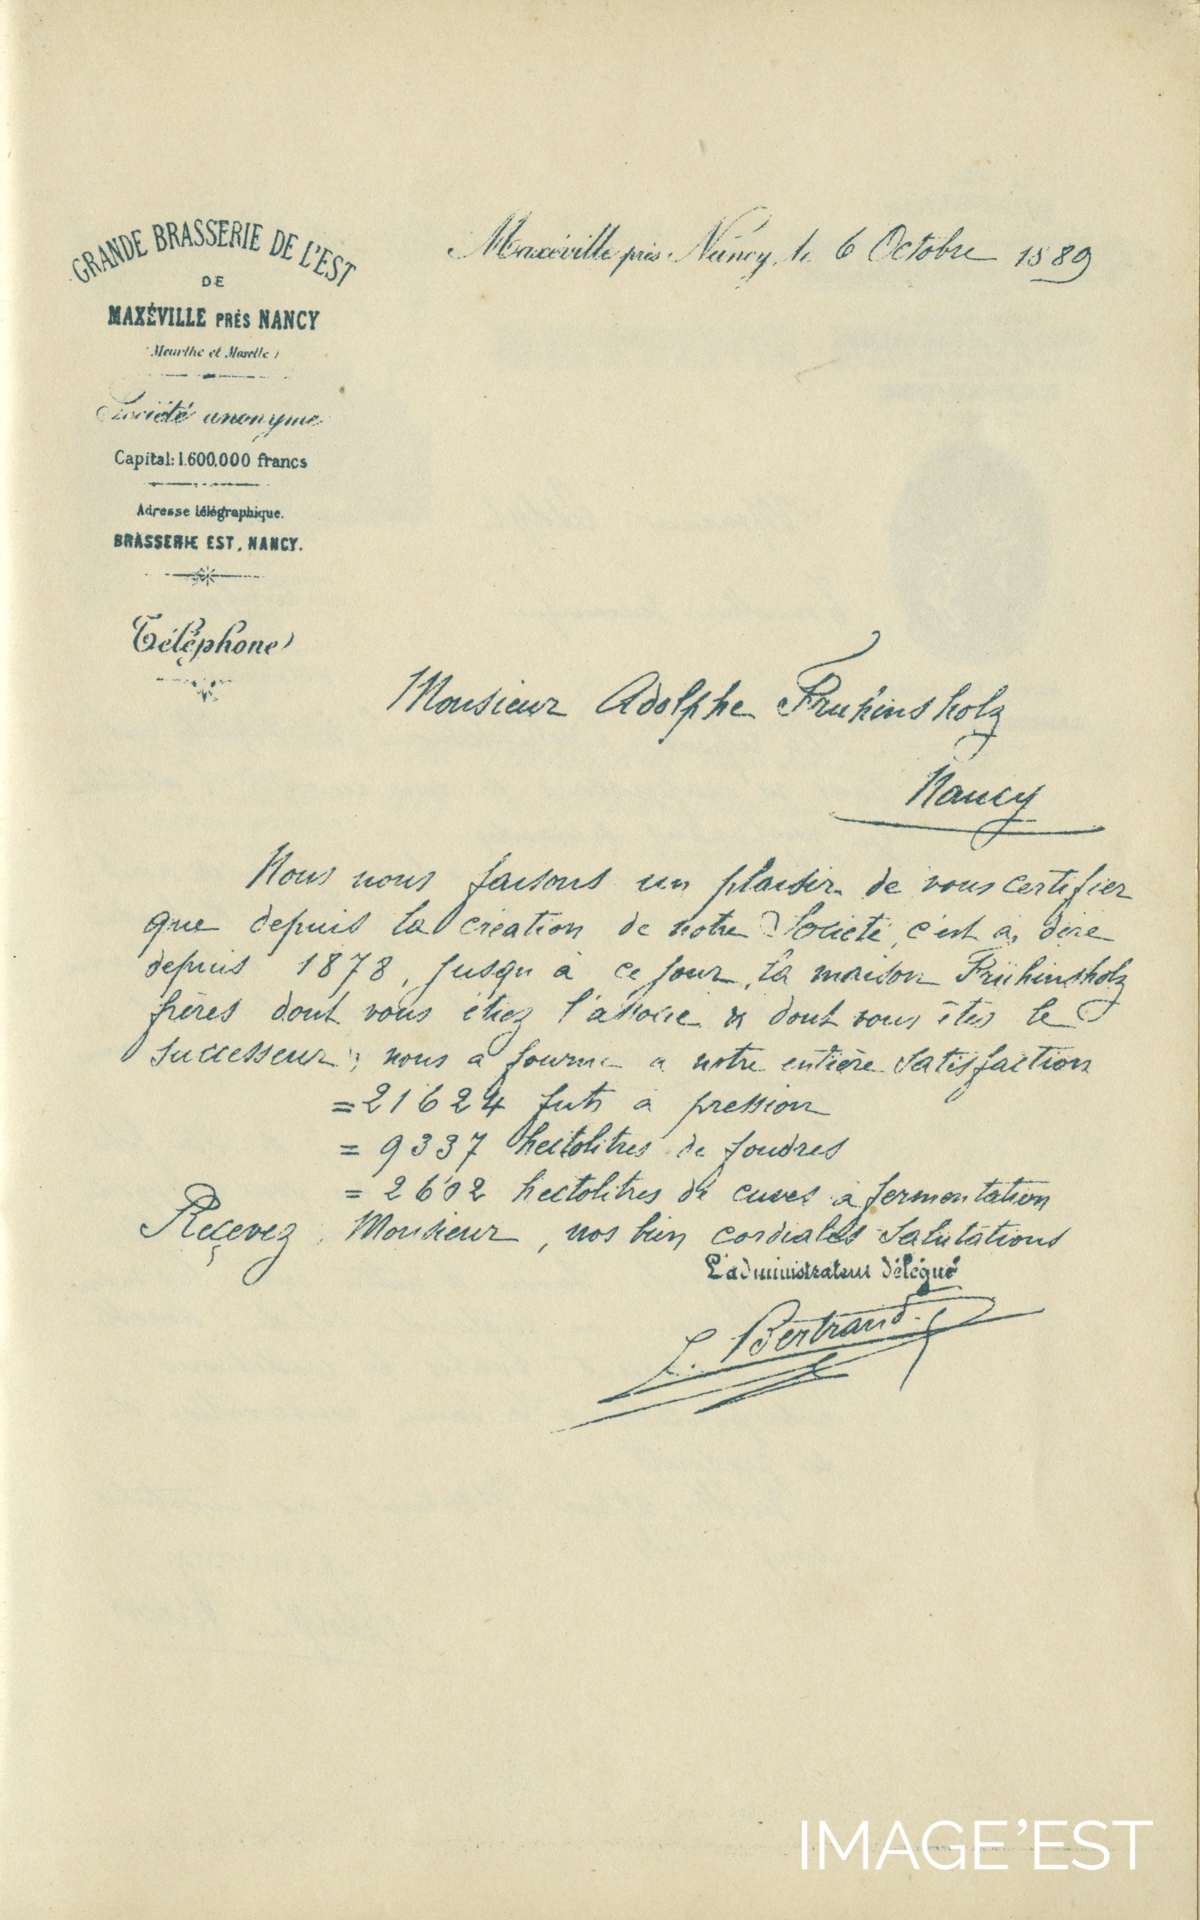 GRANDE BRASSERIE DE L'EST
DE
MAXÉVILLE PRÈS NANCY
(Meurthe et Moselle)
Société anonyme
Capital: 1.600,000 francs
Adresse télégraphique.
BRASSERIE EST, NANCY.
Téléphone
Maxéville près Nancy, le 6 Octobre 1889
Monsieur Adolphe Frühinsholz
Nancy
Nous nous faisons un plaisir de vous certifier
que depuis la création de notre Société, c'est à dire
depuis 1878, jusqu'à ce jour, la maison Frühinsholz
frères dont vous étiez l'associé & dont vous êtes le
successeur, nous a fourni à notre entière satisfaction
= 21624 futs à pression
= 9337 hectolitres de foudres
= 2602 hectolitres de cuves à fermentation
Recevez, Monsieur, nos bien cordiales salutations
L'administrateur délégué
L. Bertrand
IMAGE'EST